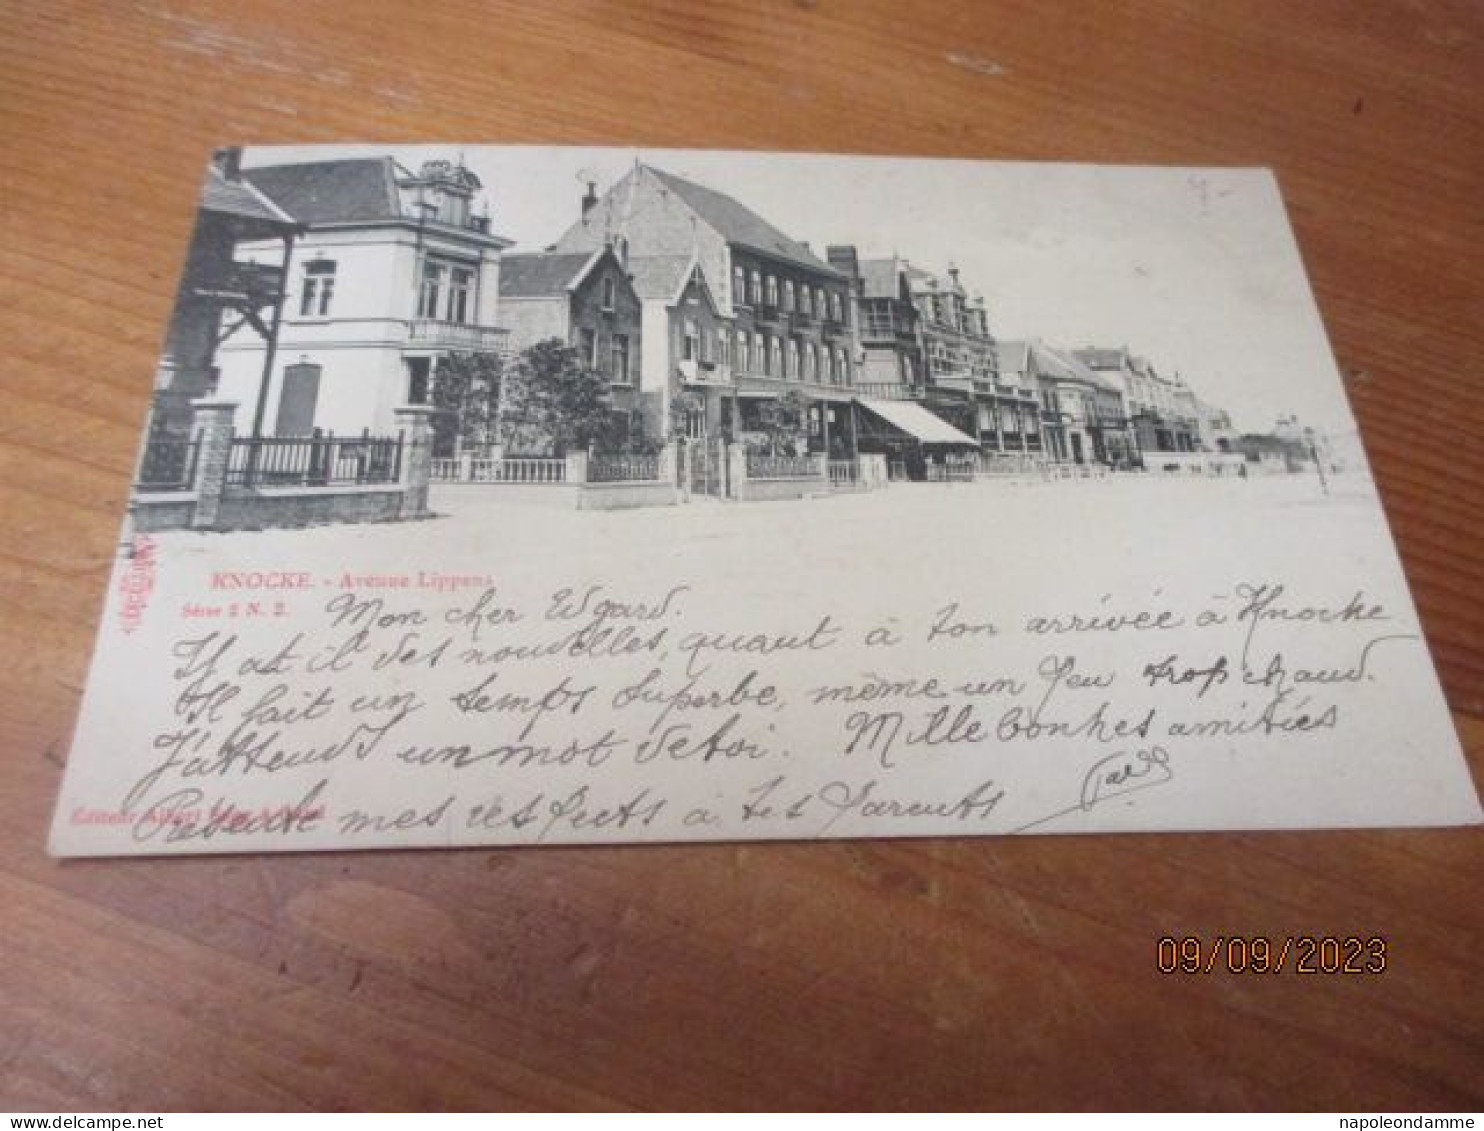 KNOCKE. - Avenue Lippens
Série 2 N. 2.
Mon cher Edgard.
Y at il des nouvelles, quant à ton arrivée à Knocke
Il fait un temps superbe, même un peu trop chaud.
J'attends un mot de toi. Mille bonnes amitiés
mes respects à tes parents
Editeur Albert
09/09/2023
napoleondamme